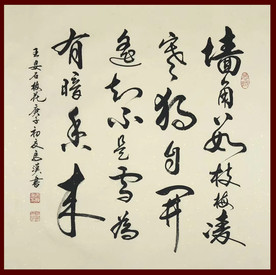 墙角数枝梅凌
寒独自開
遥知不是雪為
有暗香来
王安石梅花庚子初夏书